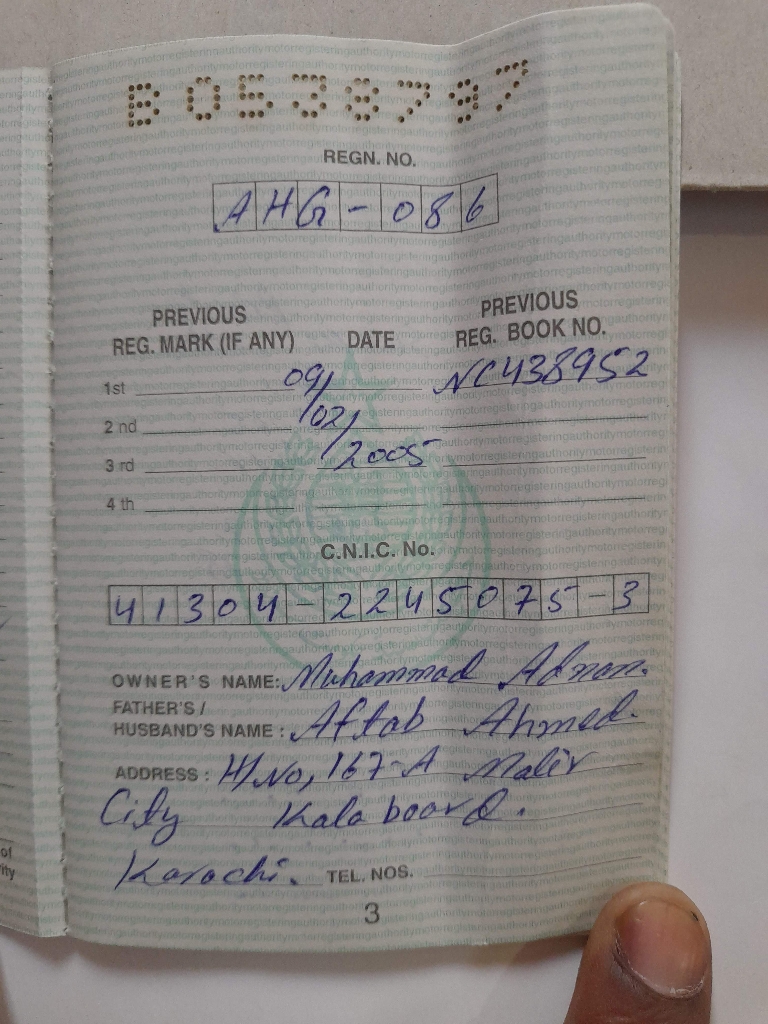 B0538797
REGN. NO.
AHG-086
PREVIOUS REG. MARK (IF ANY) DATE PREVIOUS REG. BOOK NO.
1st 09/ NC438952
2 nd 02/
3 rd 2005
4 th
C.N.I.C. No.
41304-2245075-3
OWNER'S NAME: Muhammad Adnan.
FATHER'S /
HUSBAND'S NAME : Aftab Ahmed.
ADDRESS : H/No, 167-A Malir
City Kala board.
Karachi. TEL. NOS.
3